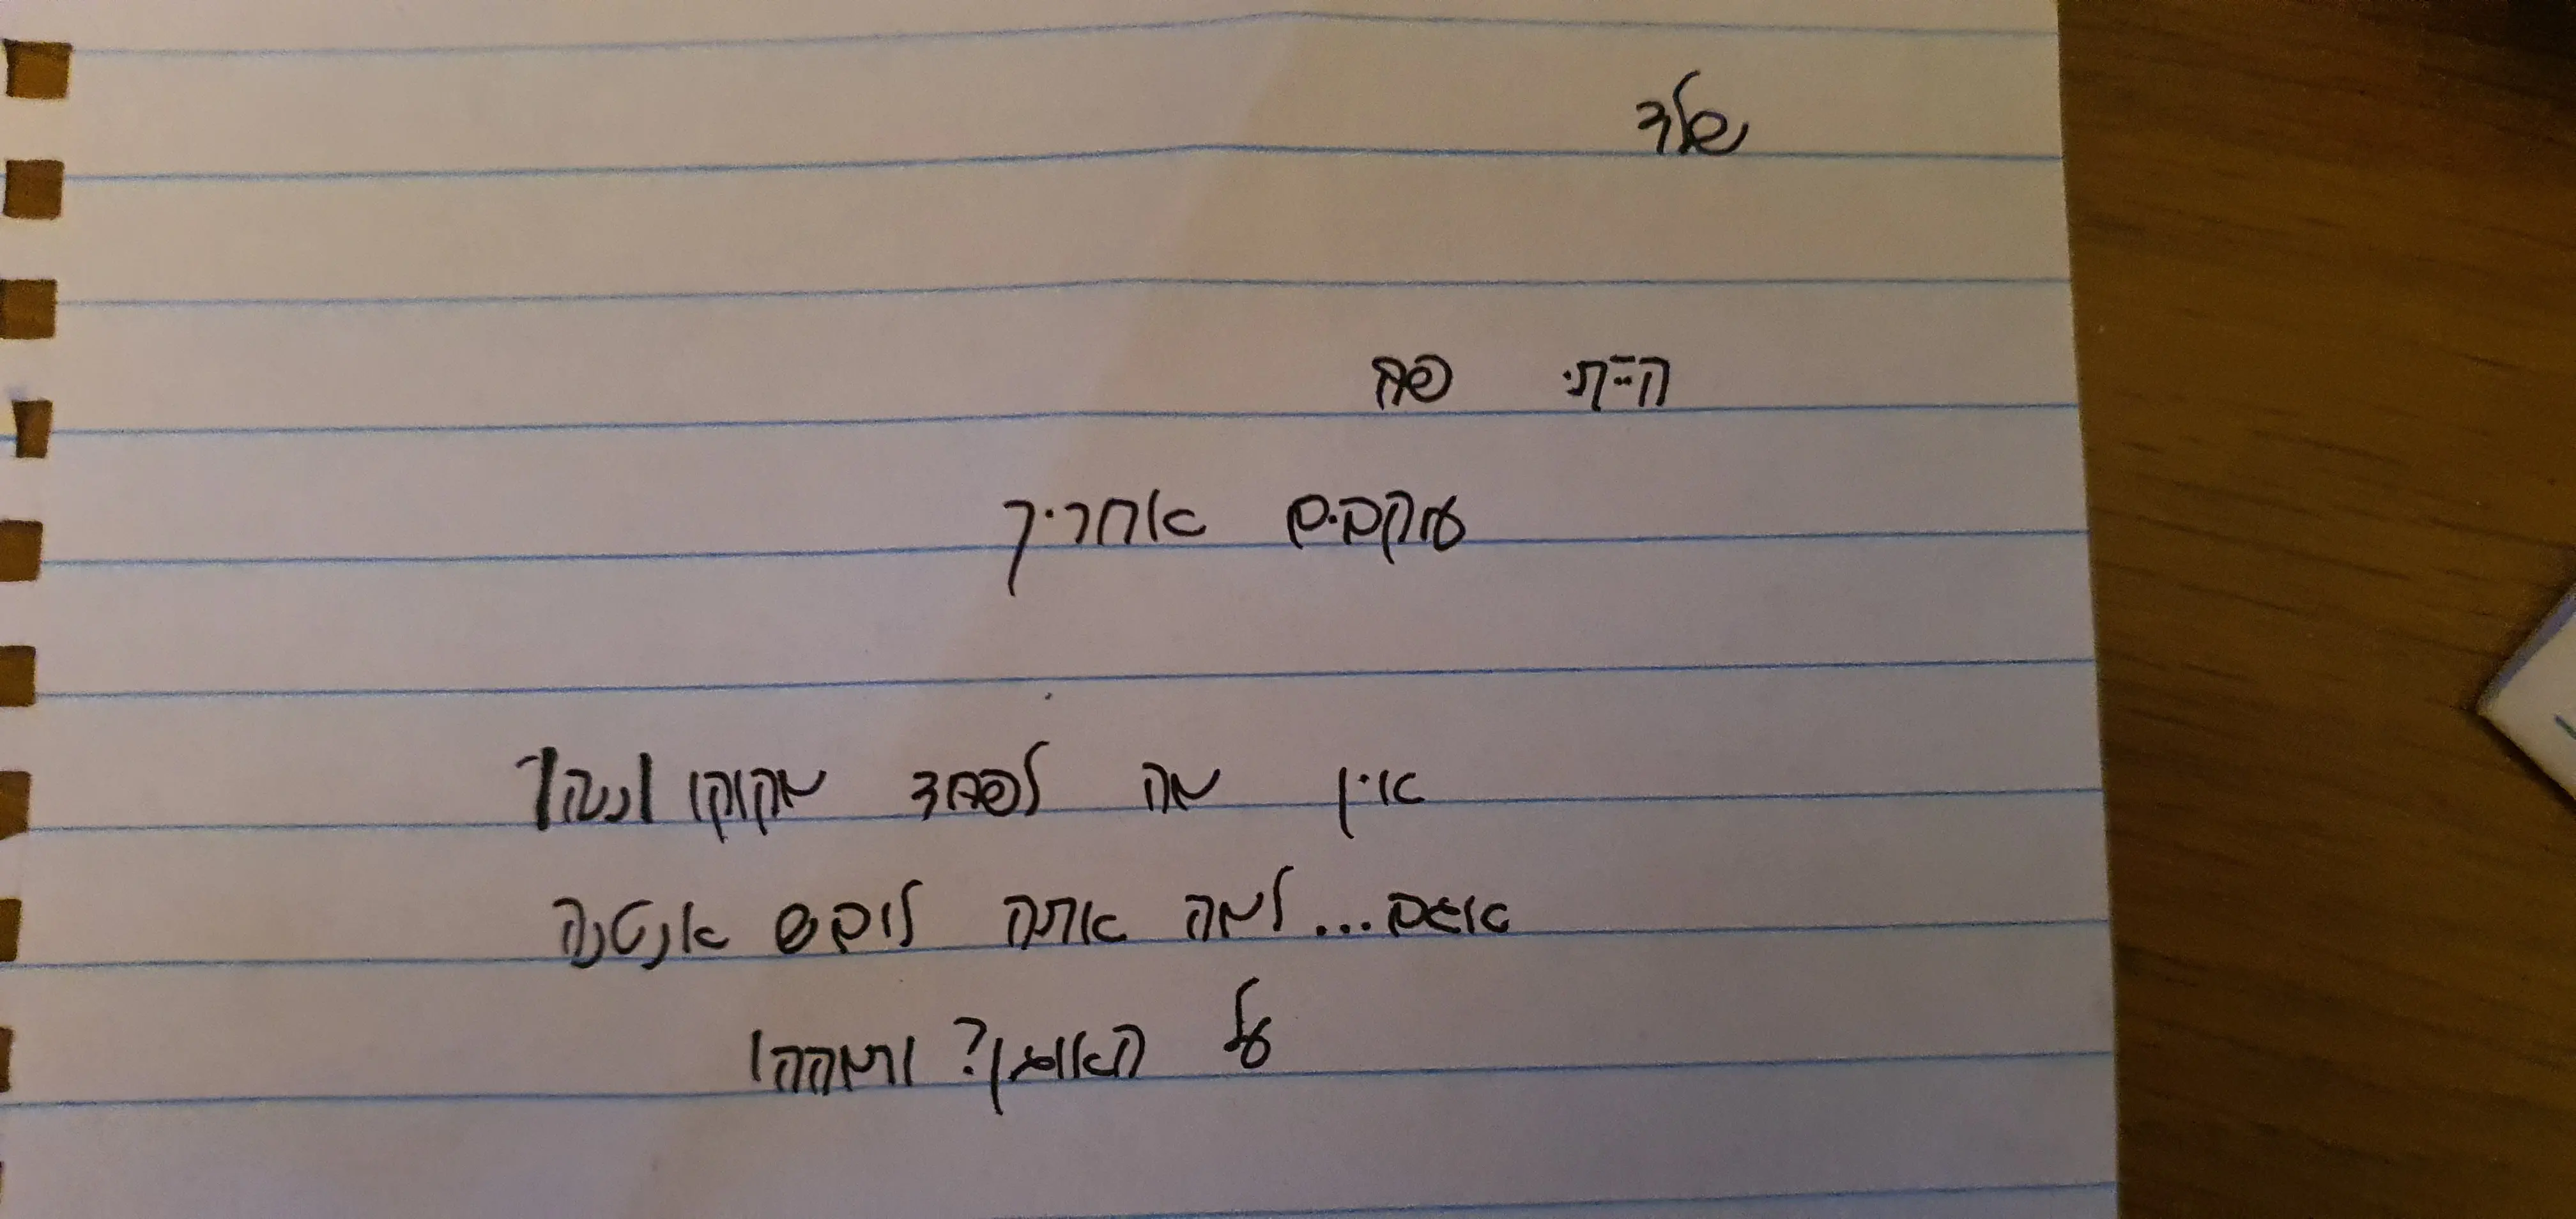 שלד
הייתי פה
עוקבים אחריך
אין מה לפחד מקוקו ונטה
אגב... למה אתה לובש אנטנה
על האוזן? ותמהה!